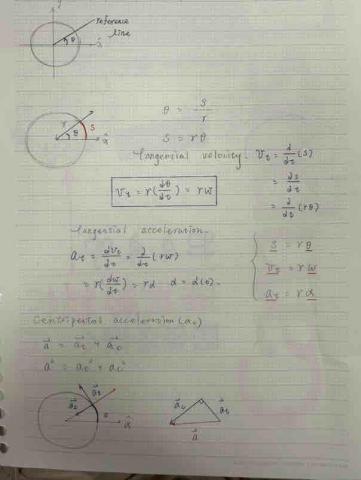 y
reference
line
θ
x̂
r
s
θ
x̂
θ = s/r
s = rθ
Tangential velocity. v_t = d/dt (s)
= ds/dt
= d/dt (rθ)
v_t = r(dθ/dt) = rw
Tangential acceleration.
a_t = dv_t/dt = d/dt (rw)
= r(dw/dt) = rα α = α(t).
s = rθ
v_t = rw
a_t = rα
Centripetal acceleration (a_c)
a⃗ = a⃗_t + a⃗_c
a² = a_t² + a_c²
a⃗_t
a⃗_c
x̂
a⃗_c
a⃗_t
a⃗